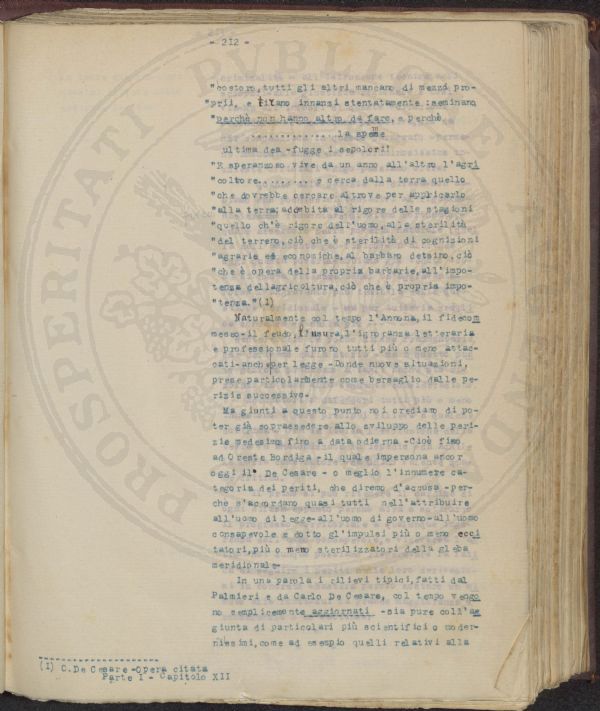 - 212 -
"costoro, tutti gli altri mancano di mezzi pro-
"prii, e tirano innanzi stentatamente : seminano
"perchè non hanno altro da fare, e perchè
.............. la speme
ultima dea - fugge i sepolcri!
"E speranzoso vive da un anno all'altro l'agri
"coltore......... e cerca dalla terra quello
"che dovrebbe cercare altrove per applicarlo
"alla terra; addebita al rigore delle stagioni
"quello ch'è rigore dell'uomo, alla sterilità
"del terreno, ciò che è sterilità di cognizioni
"agrarie ed economiche, al barbaro destino, ciò
"che è opera della propria barbarie, all'impo-
"tenza dellagricoltura, ciò che è propria impo-
"tenza."(1)
Naturalmente col tempo l'Annona, il fidecom
messo - il feudo, l'usura, l'ignoranza letteraria
e professionale furono tutti più o meno attac-
cati - anche per legge - Donde nuove situazioni,
prese particolarmente come bersaglio dalle pe-
rizie successive.
Ma giunti a questo punto noi crediamo di po-
ter già soprassedere allo sviluppo delle peri-
zie medesime fino a data odierna - Cioè fino
ad Oreste Bordiga - il quale impersona ancor
oggi il De Cesare - o meglio l'innumere ca-
tegoria dei periti, che diremo d'accusa - per-
chè s'accordano quasi tutti nell'attribuire
all'uomo di legge - all'uomo di governo - all'uomo
consapevole e dotto gl'impulsi più o meno ecci
tatori, più o meno sterilizzatori della gleba
meridionale -
In una parola i rilievi tipici, fatti dal
Palmieri e da Carlo De Cesare, col tempo vengo
no semplicemente aggiornati - sia pure coll'ag
giunta di particolari più scientifici o moder-
nissimi, come ad esempio quelli relativi alla
(1) C. De Cesare - Opera citata
Parte I - Capitolo XII
PROSPERITATI PVBLICE